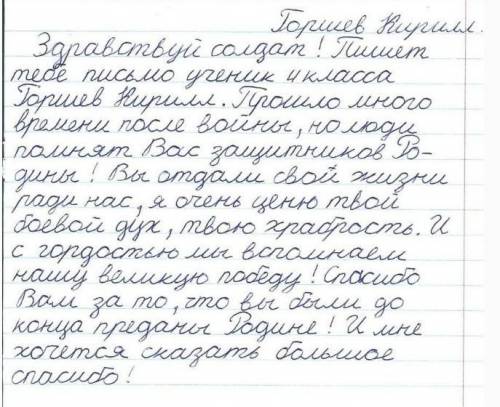 Горшев Кирилл.
Здравствуй солдат! Пишет
тебе письмо ученик 4 класса
Горшев Кирилл. Прошло много
времени после войны, но люди
помнят Вас защитников Ро-
дины! Вы отдали свой жизни
ради нас, я очень ценю твой
боевой дух, твою храбрость. И
с гордостью мы вспоминаем
нашу великую победу! Спасибо
Вам за то, что вы были до
конца преданы Родине! И мне
хочется сказать большое
спасибо!